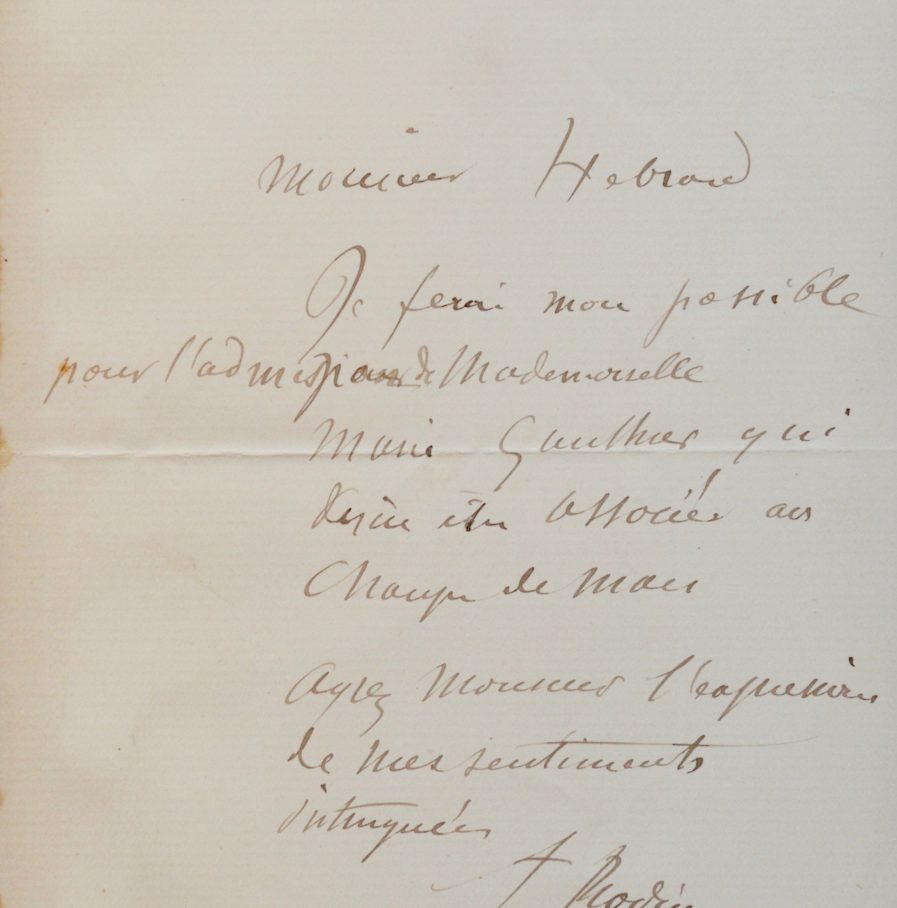 Monsieur Hebrard
Je ferai mon possible
pour l'admission de Mademoiselle
Marie Gauthier qui
desire être associée au
Champ de Mars
Agréez Monsieur l'expression
de mes sentiments
distingués
A Rodin